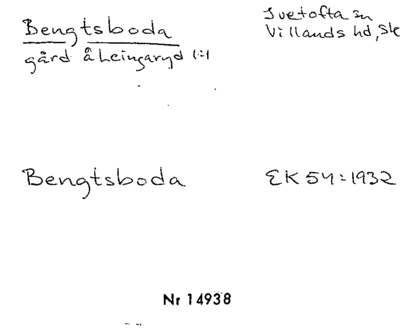 Bengtsboda
gård å Leingaryd (:)
Ivetofta sn
Villands hd, Sk
Bengtsboda
EK 54:1932
Nr 14938